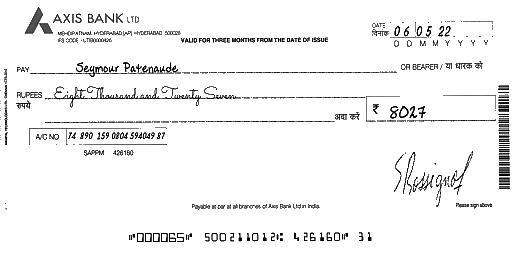 AXIS BANK LTD
MEHDIPATNAM, HYDERABAD [AP] - HYDERABAD 500028
IFS CODE - UTIB0000426
VALID FOR THREE MONTHS FROM THE DATE OF ISSUE
DATE दिनांक 06 05 22
D D M M Y Y Y Y
PAY Seymour Patenaude OR BEARER / या धारक को
RUPEES रुपये Eight Thousand and Twenty Seven
अदा करें ₹ 8027
A/C NO 74 890 159 0804 594049 87
SAPPM 426160
S Rossignol
Payable at par at all branches of Axis Bank Ltd in India.
Please sign above
⑈000065⑈ 500211012⑆ 426160⑈ 31